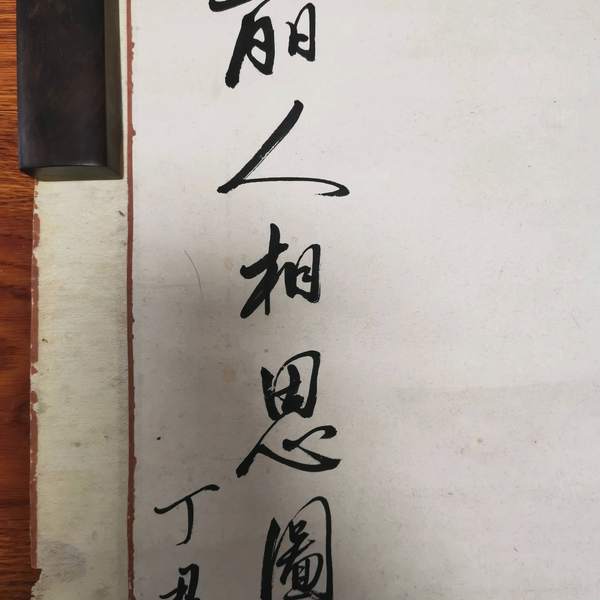 人相思圖
丁